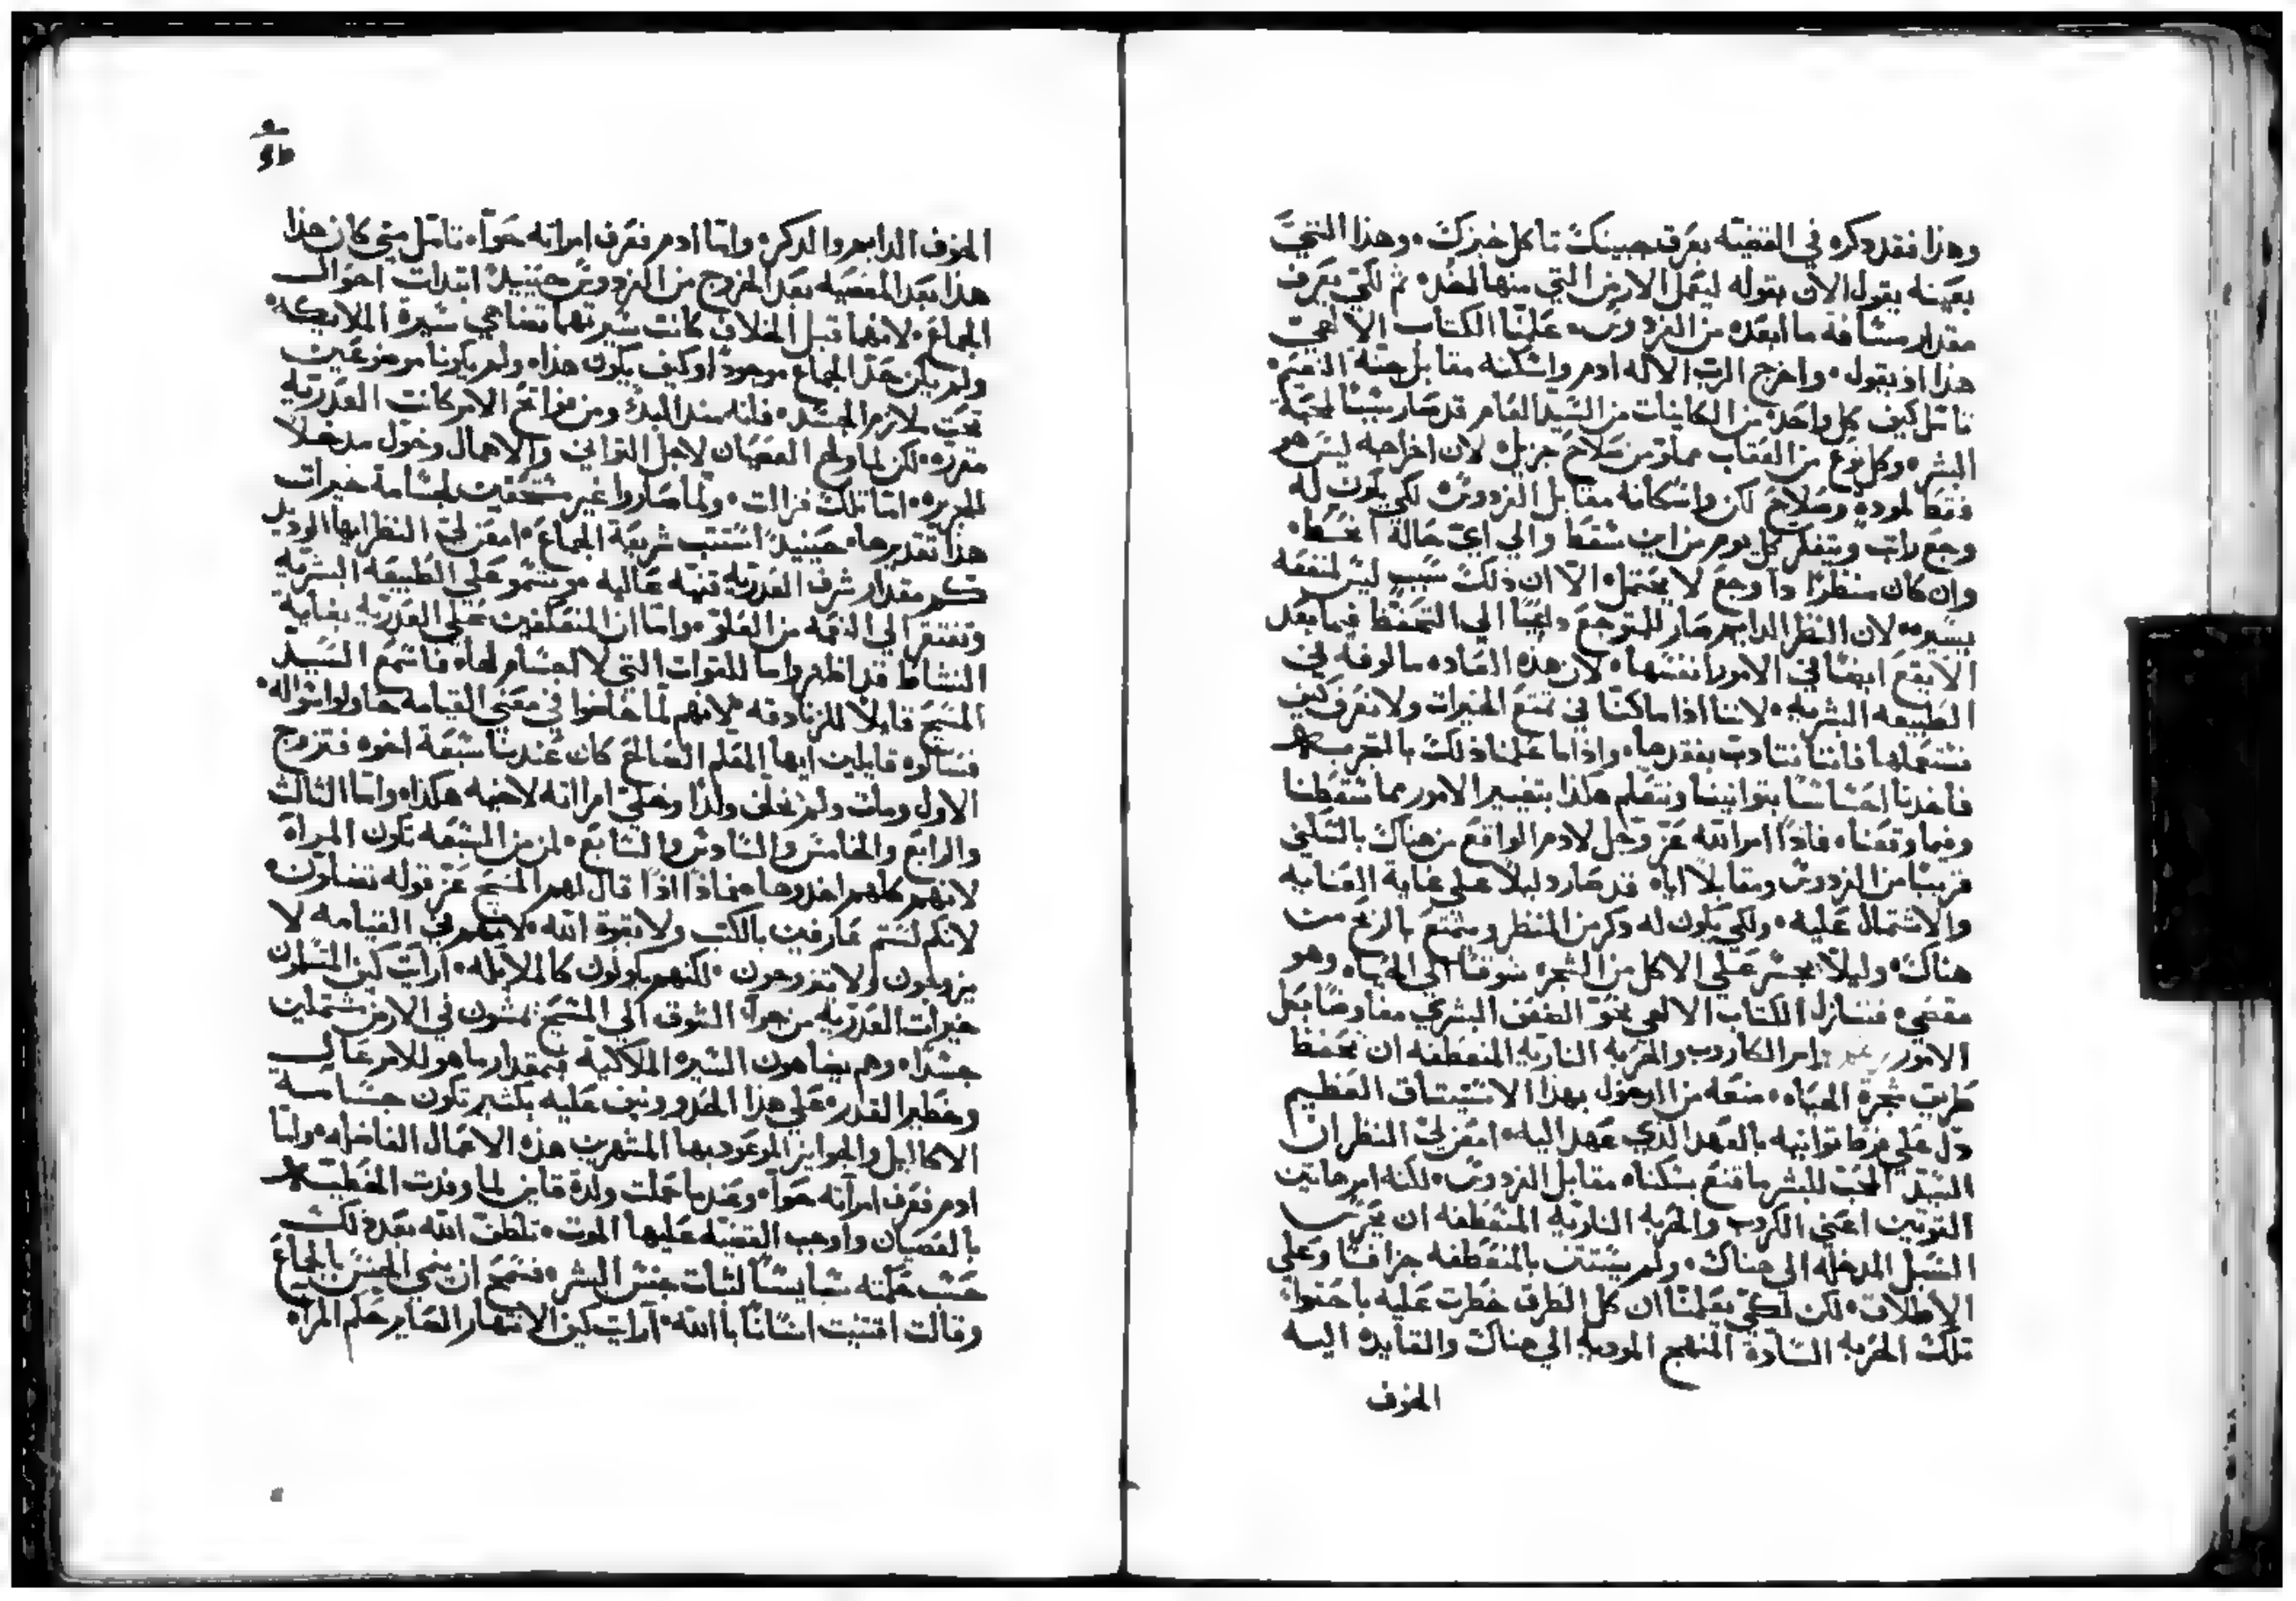 وهذا فقد ذكره في القضيه بعرق جبينك تاكل خبزك وهذا الشي
بعينه يقول الان بقوله ليعمل الارض التي منها اخذ ثم لكي يعرف
مقدار مسافة ما ابعده من الفردوس علمنا الكتاب الالهي
هذا اذ يقول واخرج الرب الاله ادم واسكنه مقابل جنة النعيم
تامل كيف كل واحد من الكاينات من السيد العام قد صار سببا لمحبة
البشر وكل نوع من العقاب مملو من صلاح جزيل لان اخراجه ليس هو
فقط لموده وصلاح لكن واسكانه مقابل الفردوس لكي يكون له
وجع راتب ويتفكر كل يوم من اين سقط والي اي حالة انحط
وان كان منظرا ذا وجع لا يحتمل الا ان ذلك سبب ليس لمنفعه
يسيره لان النظر الدايم صار للتوجع داعيا الي التحفظ فيما بعد
الا يقع ايضا في الامور انفسها لان هذه العاده مالوفه في
الطبيعه البشريه لاننا اذا ما كنا في تمتع الخيرات ولا نعرف كيف
نستعملها فاننا نتادب بفقدها واذا ما علمنا ذلك بالتجربه
فاخذنا احساسا بتوانينا ونتعلم هكذا بتغيير الامور مما سقطنا
وفيما وقعنا فاذا امر الله عز وجل لادم الواقع من هناك بالسكني
قريبا من الفردوس ومقابلا اياه قد صار دليلا علي غاية العنايه
والاشتمال عليه ولكي يكون له ذكر من المنظر ويتمتع بالربح من
هناك وليلا يجسر علي الاكل من الشجره شوقا الي الحياه وهو
مقصي فتنازل الكتاب الالهي نحو الضعف البشري مفاوضا بكل
الامور امر الكاروب والحربه الناريه المنعطفه ان تحفظ
طريق شجرة الحياه منعه من الدخول بهذا الاستيثاق العظيم
دل علي فرط توانيه بالعهد الذي عهد اليه امعن لي النظر ان
السيد المحب للبشر ما قنع بسكناه مقابل الفردوس لكنه امر هاتين
القوتين اعني الكروب والحربه الناريه المنعطفه ان تحرس
السبل المدخله الي هناك ولم يستثن بالمنعطفه جزافا وعلي
الاطلاق لكن لكي يعلمنا ان كل الطرق حظرت عليه باحتواء
تلك الحربه السادة المنهج الموديه الي هناك والقايده اليه
الخوف
الخوف الدايم والذكر واما ادم فعرف امراته حوا تامل متي كان هذا
هذا بعد المعصيه بعد الخروج من الفردوس حينيذ ابتدات احوال
الجماع لانهما قبل الخلاف كانت سيرتهما تضاهي سيرة الملايكه
ولم يكن هذا الجماع موجودا وكيف يكون هذا ولم يكونا موضوعين
تحت لازم الجسد فانه منذ البدء ومن فواتح الامر كانت العذريه
مقرره لكن لما ولج العصيان لاجل التواني والاهمال وخول مدخلا
للجريره اما تلك فزالت ولما صاروا غير مستحقين لجسامة خيرات
هذا تقديرها حينيذ استتب شريعة الجماع امعن لي النظر ايها الوديد
كم مقدار شرف العذريه قنيه عاليه هو يسمو علي الطبيعه البشريه
وتفتقر الي الذمه من العلو واما ان المتعكفين علي العذريه بغاية
النشاط قد اظهروا سا للقوات التي لا اجسام لها فاسمع السيد
المسيح قايلا للزنادقه لانهم لما خاضوا في معني القيامه حاولوا سواله
فسالوه قايلين ايها المعلم الصالح كان عندنا سبعة اخوه فتزوج
الاول ومات ولم يخلف ولدا وخلي امراته لاخيه هكذا واما الثالث
والرابع والخامس والسادس والسابع لمن من السبعه تكون المراة
لانهم كلهم اخذوها فماذا اذا قال لهم المسيح عز قوله تضلون
لانكم لستم عارفين بالكتب ولا بقوة الله لانهم في القيامه لا
يزوجون ولا يتزوجون لكنهم يكونون كالملايكه ارايت كيف المتبتلون
خيرات العذريه من جراء الشوق الي المسيح يمشون في الارض مشتملين
جسدا وهم يضاهون السيره الملاكيه فبمقدار ما هو الامر عالي
وخطير القدر علي هذا الحذو وينيف عليه بكثير تكون جسامة
الاكاليل والجوايز الموعود بها المشتهرين هذه الاعمال الفاضله واما
ادم فعرف امراته حوا وعندما حملت ولدة قاين لما وفدت الخطيه
بالعصيان واوجب القضيه عليها الموت تلطف الله بعد ذلك
حسب حكمته سياسيا لثبات جنس البشر فسمح ان ينمي الجنس بالجماع
وقالت اقتنيت انسانا بالله ارايت كيف الانتهار الصاير حكم المراه